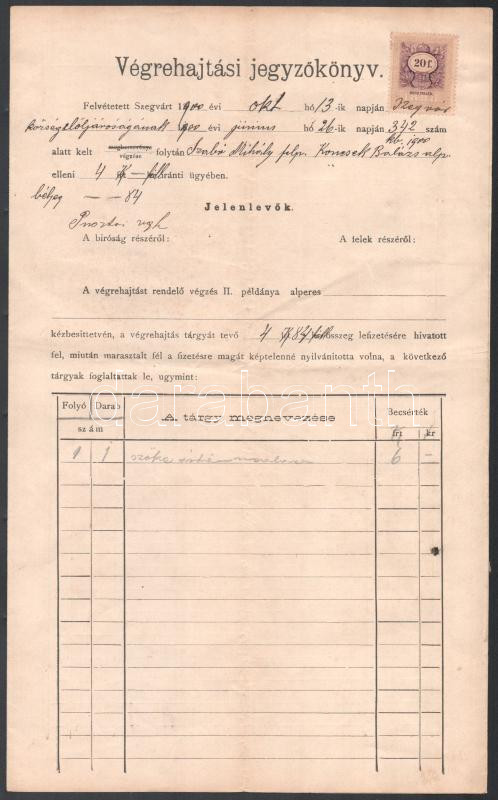 20 f.
Végrehajtási jegyzőkönyv.
Felvétetett Szegvárt 1900 évi okt hó 13-ik napján Szegvár
község elöljáróságának 1900 évi június hó 26-ik napján 342 szám
kb. 1900
alatt kelt végzése folytán Szabó Mihály felp. Koncsek Balázs alp.
elleni 4 K – iránti ügyében.
bélyeg – – 84
Jelenlevők.
A biróság részéről: A felek részéről:
A végrehajtást rendelő végzés II. példánya alperes
kézbesittetvén, a végrehajtás tárgyát tevő 4 K 84 összeg lefizetésére hivatott
fel, miután marasztalt fél a fizetésre magát képtelenné nyilvánitotta volna, a következő
tárgyak foglaltattak le, ugymint:
Folyó Darab A tárgy megnevezése Becsérték
szám frt kr
1 1 szőke 6 –
darabanth